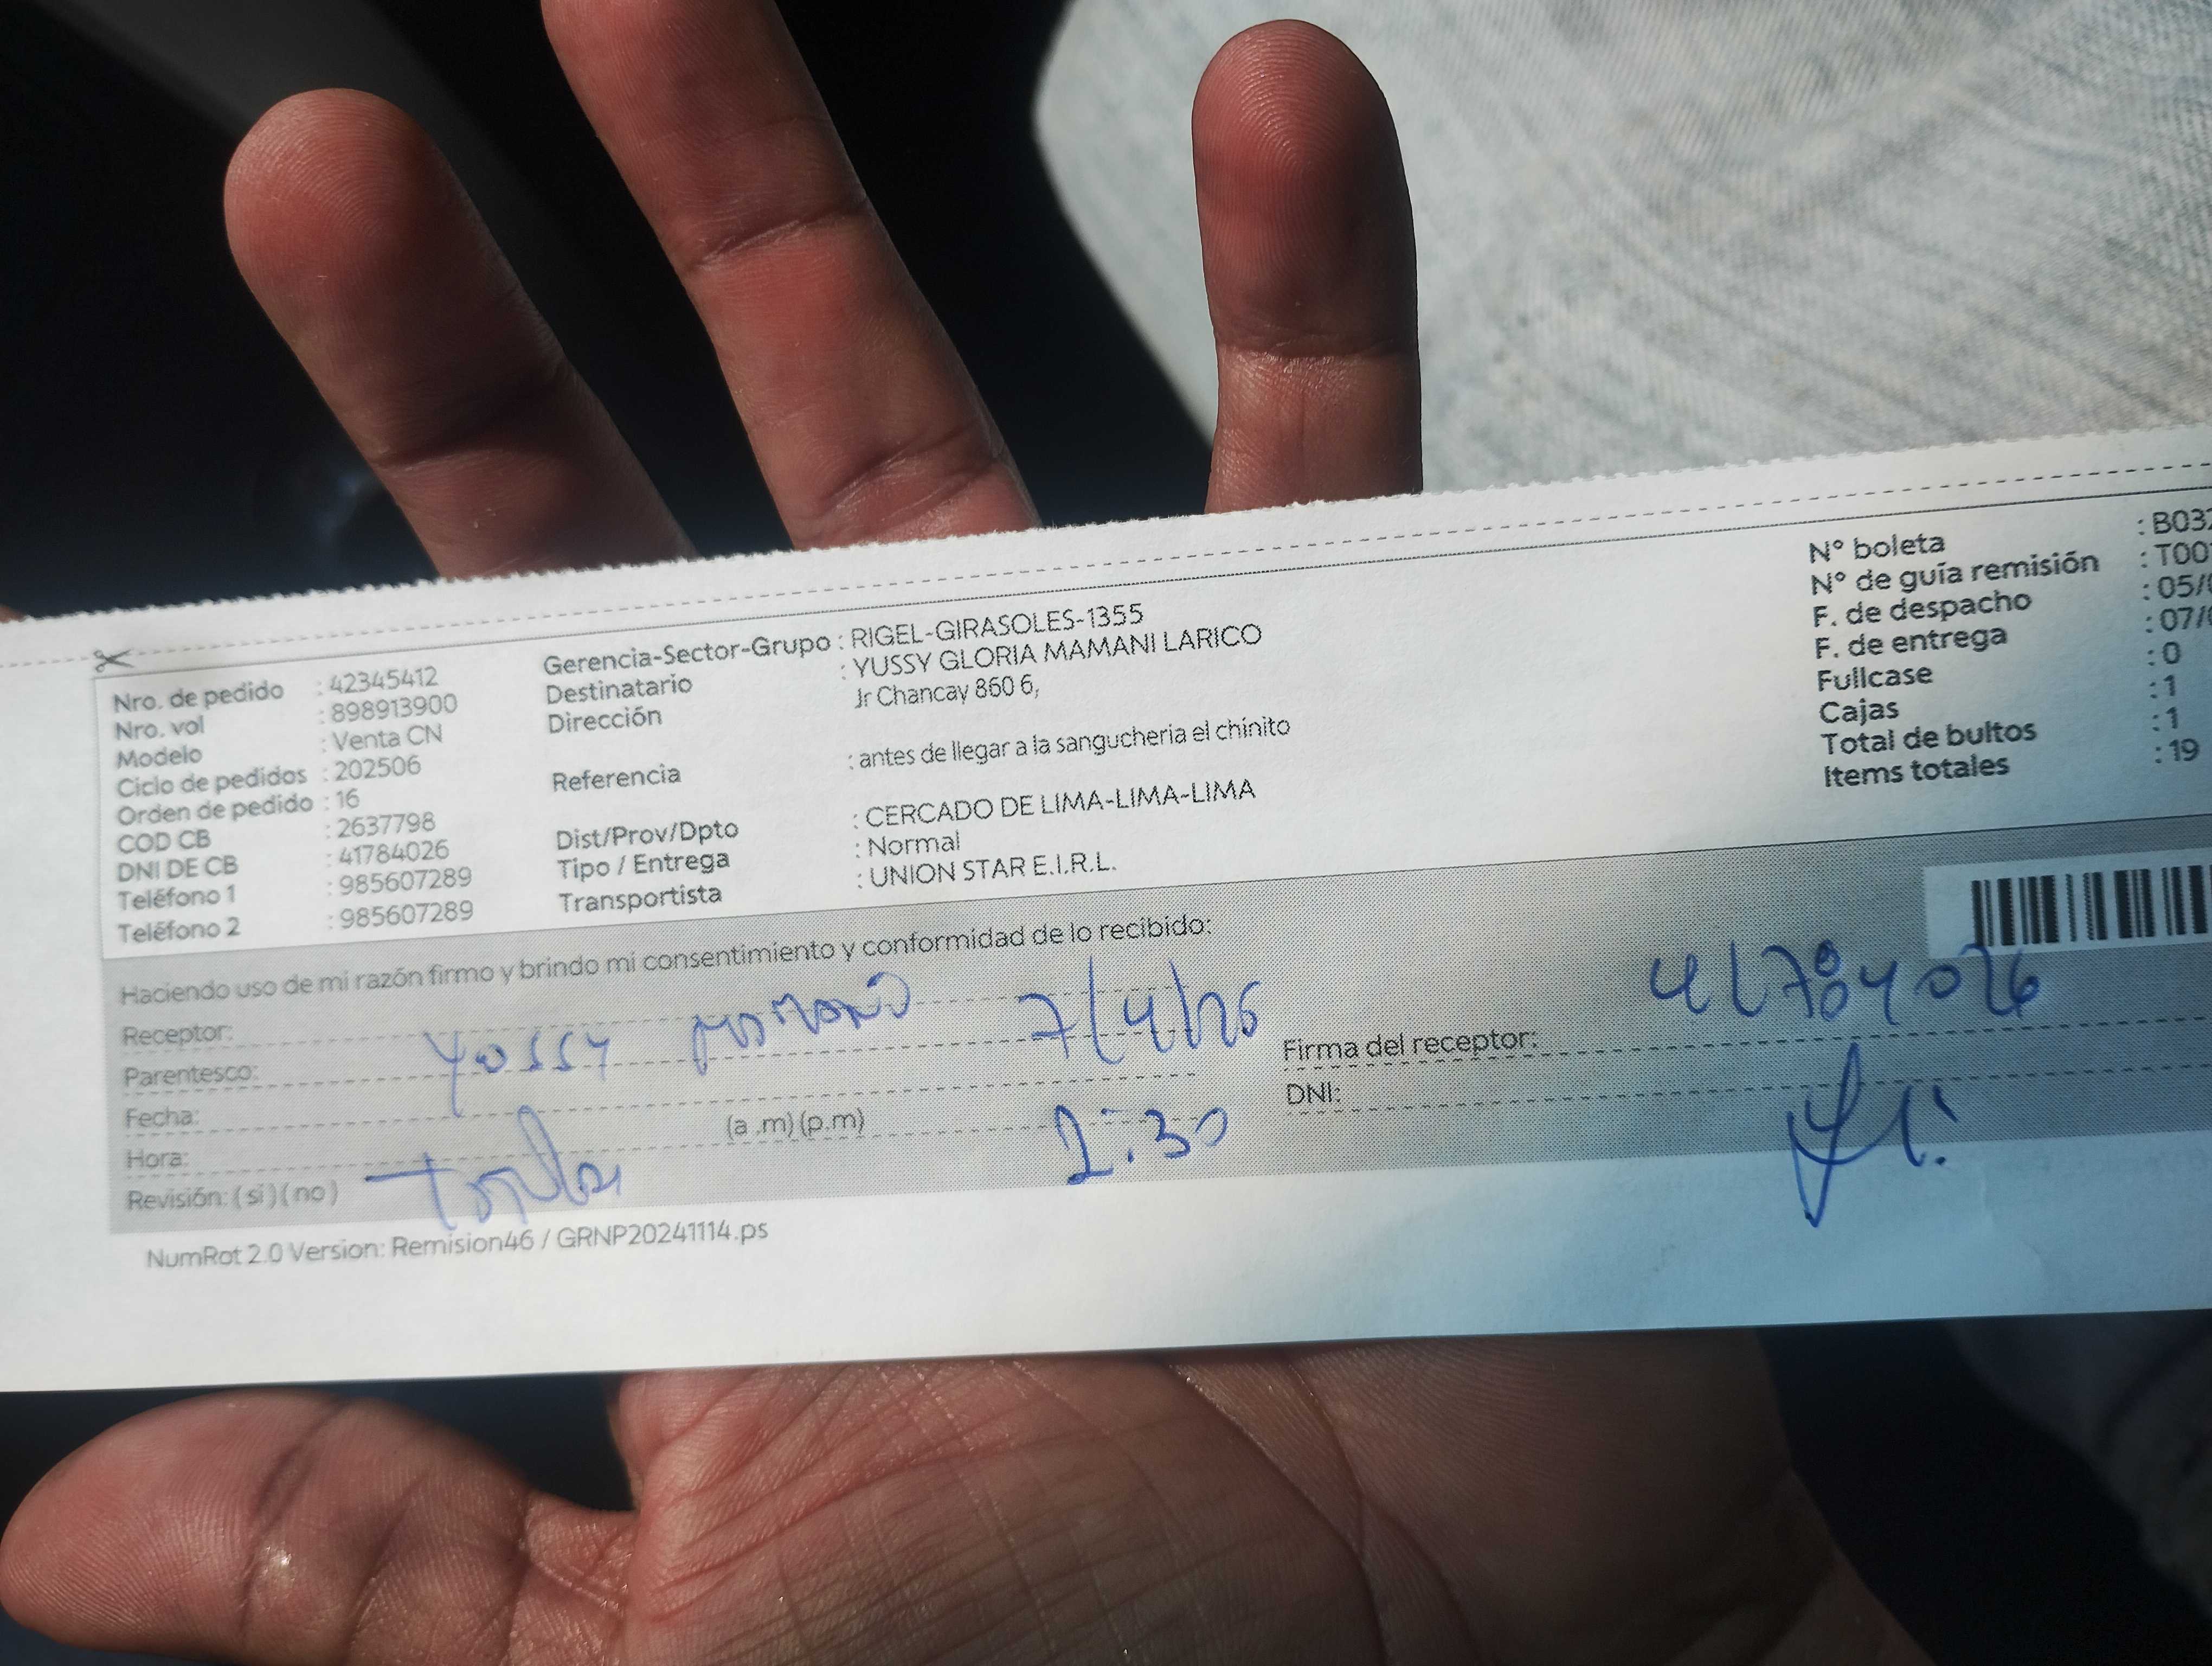 Nro. de pedido : 42345412
Nro. vol : 898913900
Modelo : Venta CN
Ciclo de pedidos : 202506
Orden de pedido : 16
COD CB : 2637798
DNI DE CB : 41784026
Teléfono 1 : 985607289
Teléfono 2 : 985607289
Gerencia-Sector-Grupo : RIGEL-GIRASOLES-1355
Destinatario : YUSSY GLORIA MAMANI LARICO
Dirección Jr Chancay 860 6,
Referencia : antes de llegar a la sangucheria el chinito
Dist/Prov/Dpto : CERCADO DE LIMA-LIMA-LIMA
Tipo / Entrega : Normal
Transportista : UNION STAR E.I.R.L.
N° boleta : B03
N° de guía remisión : T00
F. de despacho : 05/
F. de entrega : 07/
Fullcase : 0
Cajas : 1
Total de bultos : 1
Items totales : 19
Haciendo uso de mi razón firmo y brindo mi consentimiento y conformidad de lo recibido:
Receptor:
Parentesco: Yussy Mamani 7/4/25
Fecha:
Hora: (a .m) (p.m) 2:30
Revisión: ( si ) ( no )
41784026
Firma del receptor:
DNI:
NumRot 2.0 Version: Remision46 / GRNP20241114.ps